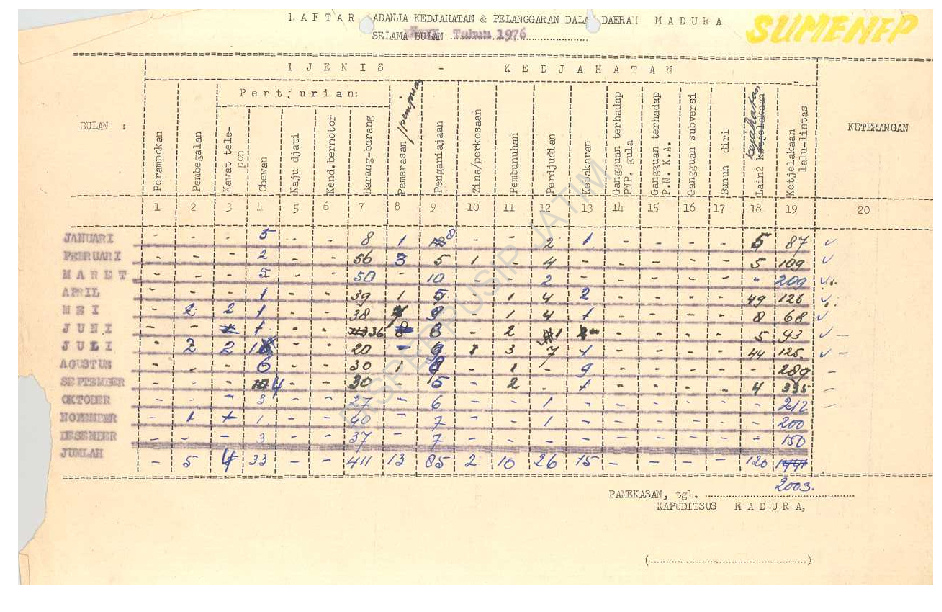 DAFTAR ADANJA KEDJAHATAN & PELANGGARAN DALAM DAERAH MADURA
SELAMA BULAN Tahun 1976
SUMENEP
DJENIS - KEDJAHATAN
Pertjurian:
BULAN :
Perampokan
Pembegalan
Kawat tele-pon
Chewan
Kaju djati
Kend.bermotor
Barang-barang
Pemerasan
Penganiajaan
Zina/perkosaan
Pembunuhan
Perdjudian
Gangguan terhadap PNP. gula
Gangguan terhadap P.N. K.A.
Gangguan subversi
Bunuh diri
Lain2
Ketjelakaan lalu-lintas
KETERANGAN
1 2 3 4 5 6 7 8 9 10 11 12 13 14 15 16 17 18 19 20
JANUARI - - - 5 - - 8 1 8 - - 2 1 - - - - 5 87
PEBRUARI - - - 2 - - 56 3 5 1 - 4 - - - - - 5 169
MARET - - - 5 - - 50 - 10 - - 2 - - - - - - 209
APRIL - - - 1 - - 39 1 5 - 1 4 2 - - - - 49 126
MEI - 2 2 1 - - 38 8 - 1 4 1 - - - - 8 68
JUNI - - - - 36 - 2 - - - - 5
JULI - 2 2 - - 20 - 3 7 1 - - - - 44
AGUSTUS - - - 6 - - 30 1 - 1 - 9 - - - - - 289
SEPTEMBER - - - 4 - - 30 - 5 - 2 - 1 - - - - 4
OKTOBER - - - 3 - - 27 - 6 - - 1 - - - - - - 212
NOPEMBER - 1 1 1 - - 40 - 7 - - 1 - - - - - - 200
DESEMBER - - - 3 - - 37 - 7 - - - - - - - - - 150
JUMLAH - 5 4 33 - - 411 13 85 2 10 26 15 - - - - 120
2003.
PAMEKASAN, tgl.
MADURA,
(....................)
DISPERPUSIP JATIM